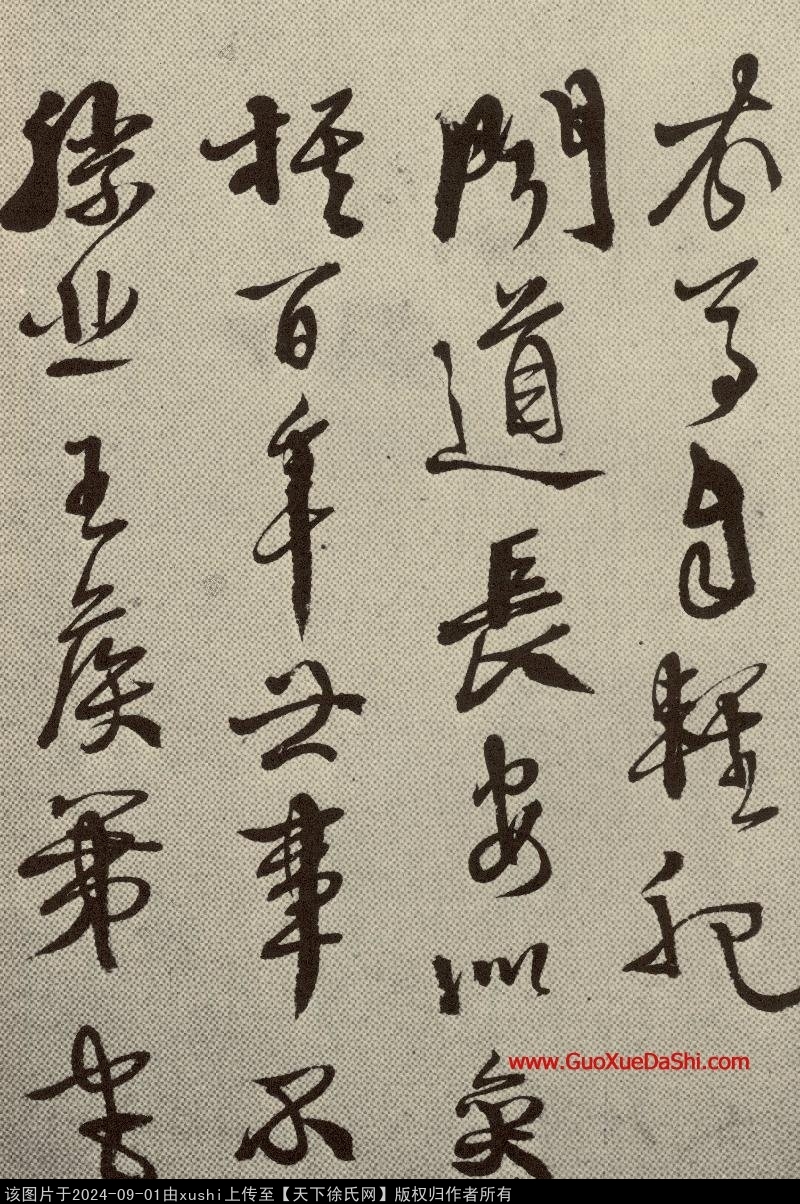 衣馬自輕肥
聞道長安似奕
棋百年世事不
勝悲王侯第
www.GuoXueDaShi.com
该图片于2024-09-01由xushi上传至【天下徐氏网】版权归作者所有